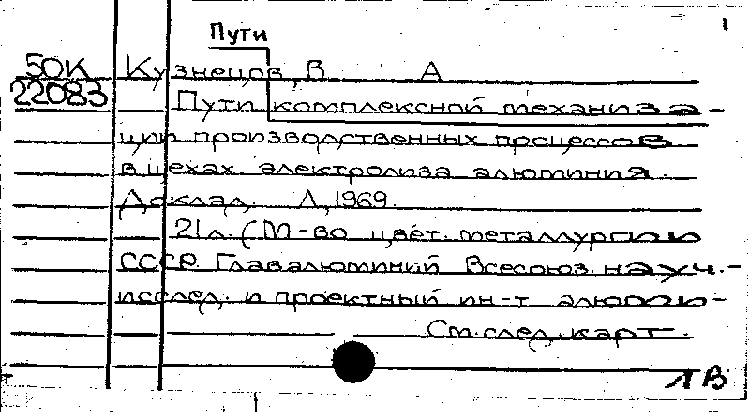 Пути
1
50К Кузнецов, В А
22083 Пути комплексной механиза-
ции производственных процессов
в цехах электролиза алюминия.
Доклад. Л, 1969.
21л. (М-во цвет. металлургии
СССР. Главалюминий Всесоюз науч.-
исслед. и проектный ин-т алюми-
См. след. карт.
1В